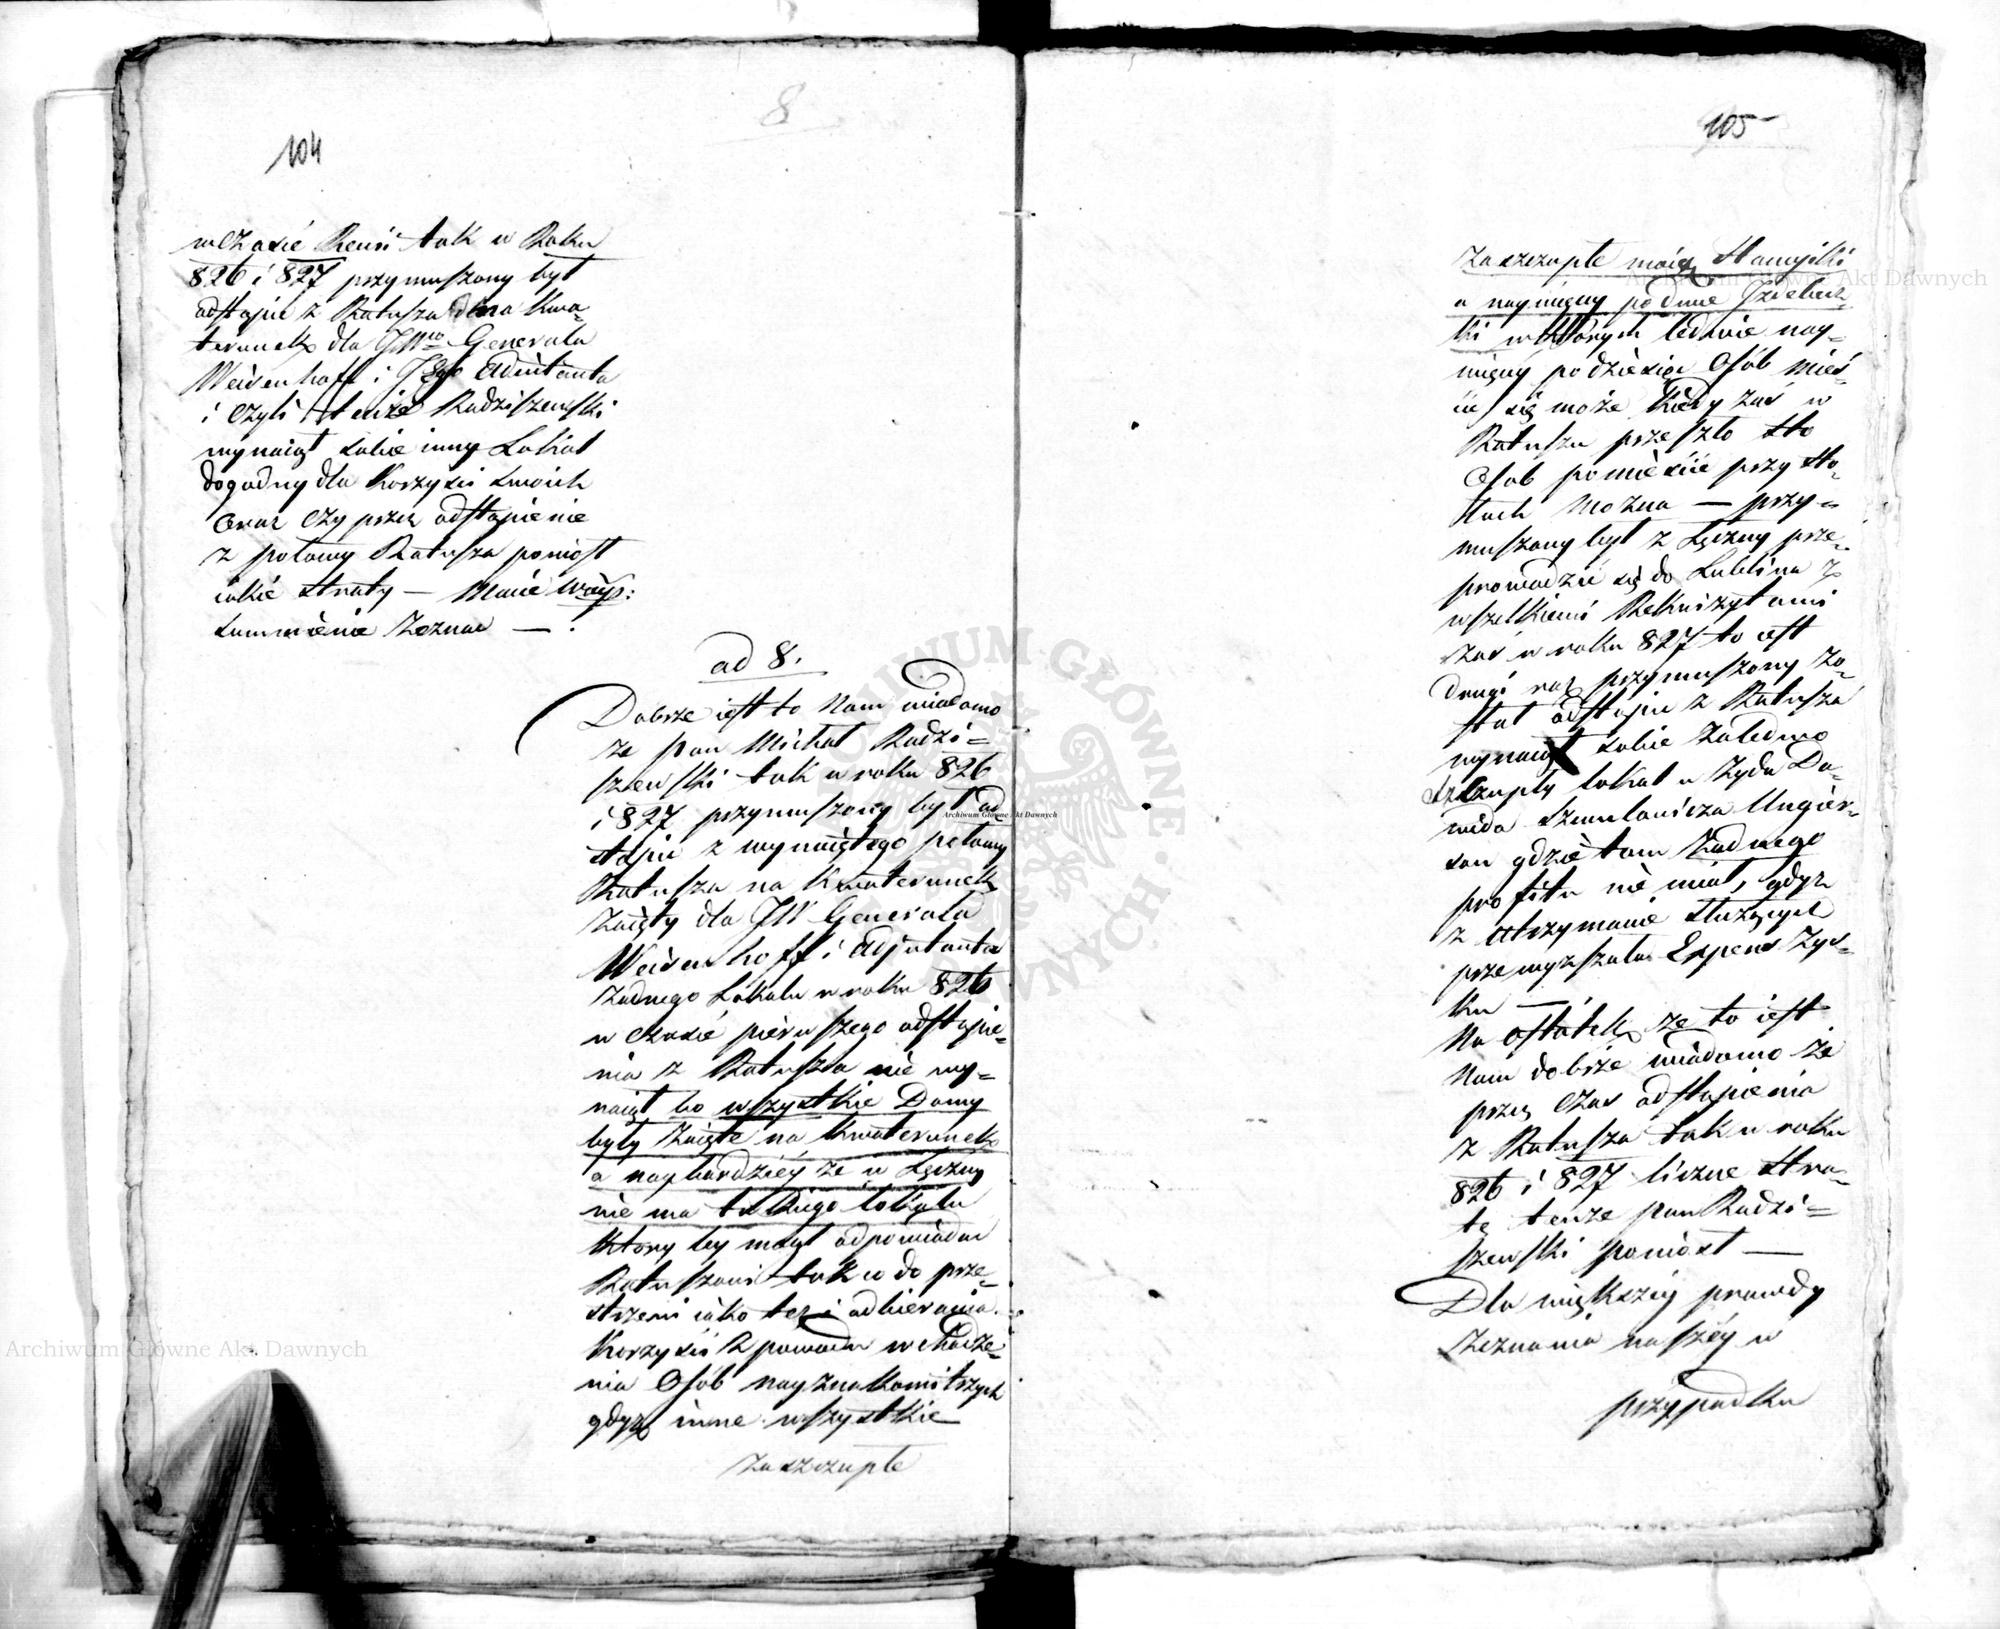 104
8
w czasie Rewii tak w Roku
826 i 827 przymuszony był
odstąpić z Ratusza dla Kwa=
terunek dla JWgo Generała
Weisenhoff i Jego Adiutanta
i czyli tenże Radziszewski
wynaiął sobie inny Lokal
dogodny dla korzyści swoich
oraz czy przez odstąpienie
z połowy Ratusza poniosł
iakie straty —
sumienie zeznać — :
ad 8.
Dobrze iest to Nam wiadomo
że pan Michał Radzi=
szewski tak w roku 826
i 827 przymuszony był od
stąpić z wynaiętego połowy
Ratusza na kwaterunek
zaięty dla JW Generała
Weisenhoff i Adjutanta
żadnego Lokalu w roku 826
w czasie pierwszego odstąpie=
nia z Ratusza nie wy=
naiął bo wszystkie Domy
były zaięte na kwaterunek
a naybardziéy że w Łęczny
nie ma takiego lokalu
któryby mógł odpowiadać
Ratuszowi tak co do prze=
strzeni iako też i odbierania
korzyści z powodu wchodze=
nia Osób nayznakomitszych
gdyż inne wszystkie
zaszczupłe
105
zaszczupłe maią Stancyiki
w których ledwie nay=
więcéy podziesięć Osób mieś=
cić się może kiedy zaś w
Ratuszu przeszło sto
Osób pomieścić przy sto=
łach można — przy=
muszony był z Łęczny prze=
prowadzić się do Lublina z
wszelkiemi Rekwizytami
zaś w roku 827 to iest
drugi raz przymuszony zo=
stał odstąpić z Ratusza
wynaiął sobie zaledwo
szczupły lokal u Żyda Da=
wida Szmulowicza Ungier=
son gdzie tam żadnego
profitu nie miał, gdyż
z utrzymanie służących
przewyższała Expens zys=
ku —
Na ostatek że to iest
Nam dobrze wiadomo że
przez czas odstąpienia
z Ratusza tak w roku
826 i 827 liczne stra=
tę tenże pan Radzi=
szewski poniosł —
Dla większéy prawdy
zeznania naszéy w
przypadku
Archiwum Główne Akt Dawnych
Archiwum Główne Akt Dawnych
Archiwum Główne Akt Dawnych